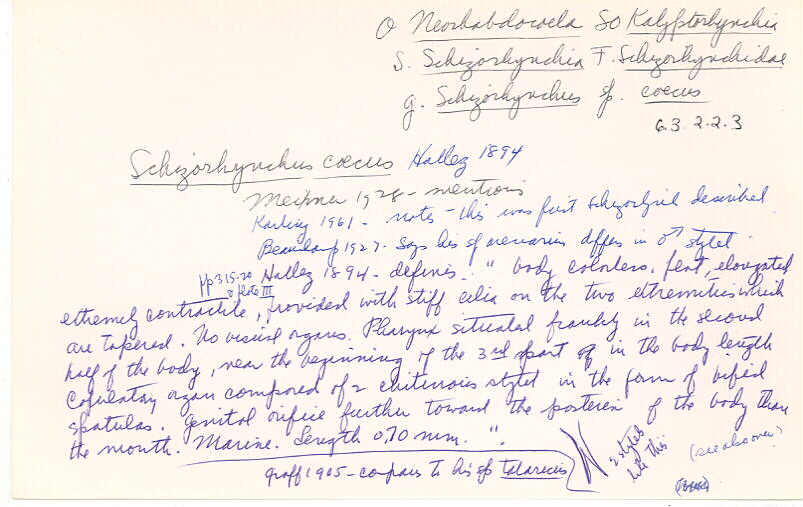 O Neorhabdocoela SO Kalyptorhynchia
S. Schizorhynchia F. Schizorhynchidae
g. Schizorhynchus sp. coecus
63.2.2.3
Schizorhynchus coecus Hallez 1894
Meixner 1928 - mentions
Karling 1961 - notes - this was first described
Beauchamp 1927 - Says his sp arenarius differs in ♂ stylet
pp 315-20
III
Hallez 1894 - defines: " body colorless, flat, elongated
extremely contractile, provided with stiff cilia on the two extremities which
are tapered. No visual organs. Pharynx situated frankly in the second
half of the body, near the beginning of the 3rd part of in the body length
Copulatory organ composed of 2 chitinois stylet in the form of bifid
spatulas. Genital orifice further toward the posterior of the body than
the mouth. Marine. Length 0.70 mm. ".
2 stylets
like this
(see also over)
Graff 1905 - compares to his sp tataricus